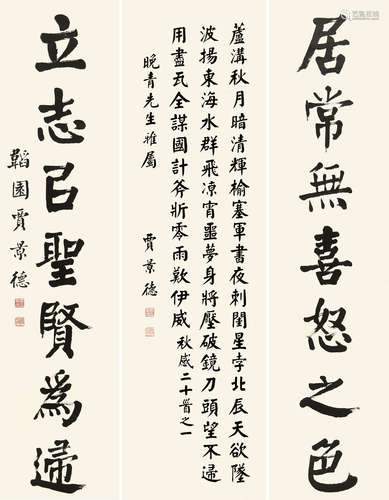 居常無喜怒之色
蘆溝秋月暗清輝榆塞軍書夜刺閨星孛北辰天欲墜
波揚東海水群飛涼宵噩夢身將壓破鏡刀頭望不歸
用盡瓦全謀國計斧斨零雨歎伊威 秋感二十首之一
晚青先生雅屬 賈景德
立志㠯聖賢為歸
韜園賈景德